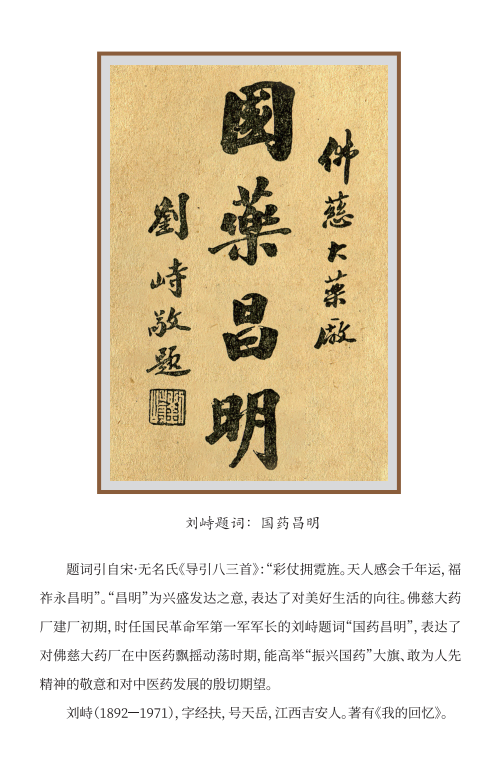 佛慈大藥廠
国藥昌明
劉峙敬題
刘峙题词：国药昌明
题词引自宋·无名氏《导引八三首》：“彩仗拥霓旌。天人感会千年运，福
祚永昌明”。“昌明”为兴盛发达之意，表达了对美好生活的向往。佛慈大药
厂建厂初期，时任国民革命军第一军军长的刘峙题词“国药昌明”，表达了
对佛慈大药厂在中医药飘摇动荡时期，能高举“振兴国药”大旗、敢为人先
精神的敬意和对中医药发展的殷切期望。
刘峙（1892—1971），字经扶，号天岳，江西吉安人。著有《我的回忆》。